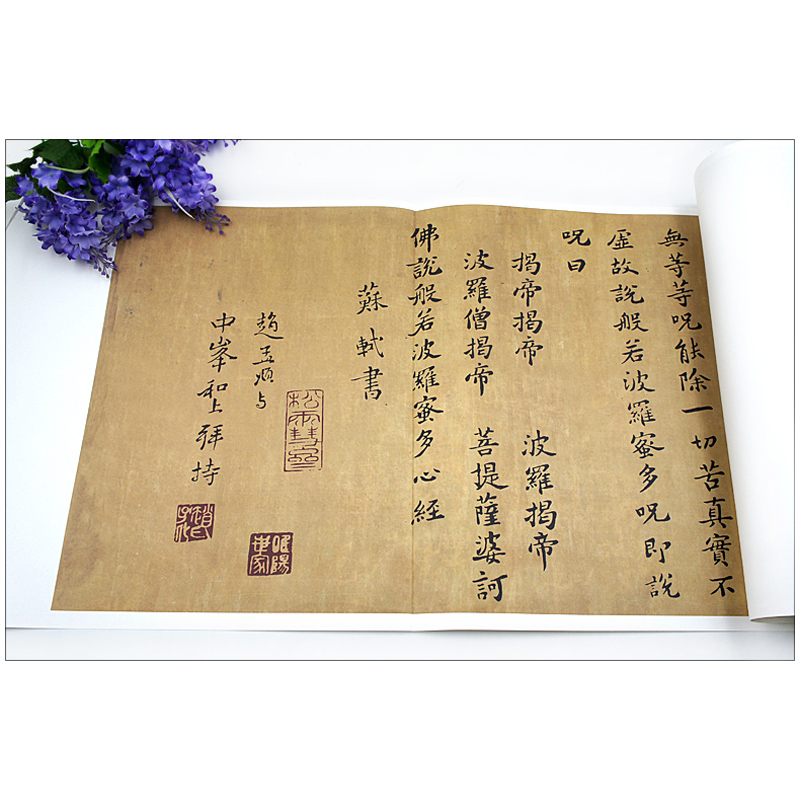 無等等呪能除一切苦真實不
虛故說般若波羅蜜多呪即說
呪曰
揭帝揭帝 波羅揭帝
波羅僧揭帝 菩提薩婆訶
佛說般若波羅蜜多心經
蘇軾書
趙孟頫与
中峯和上拜持
睢陽世家